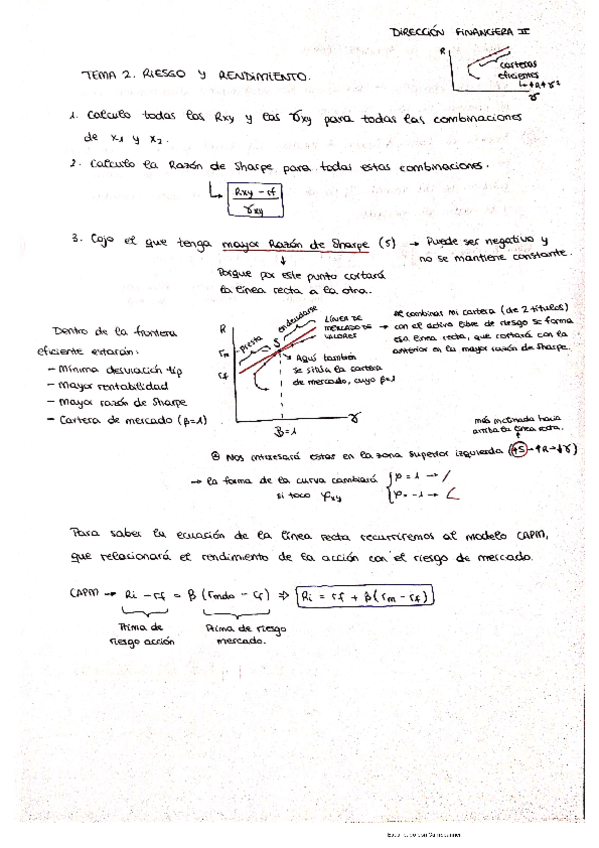 DIRECCIÓN FINANCIERA II
R
carteras
eficientes
↳ +R +σ²
σ
TEMA 2. RIESGO Y RENDIMIENTO.
1. Calculo todas las Rxy y las σxy para todas las combinaciones
de x₁ y x₂.
2. Calculo la Razón de Sharpe para todas estas combinaciones.
↳ Rxy - rf
σxy
3. Cojo el que tenga mayor Razón de Sharpe (S) → Puede ser negativo y
no se mantiene constante.
↓
Porque por este punto cortará
la línea recta a la otra.
Dentro de la frontera
eficiente estarán:
- Mínima desviación típ
- Mayor rentabilidad
- Mayor razón de Sharpe
- Cartera de mercado (β=1)
R
rm
rf
presta
S
endeudarse
LÍNEA DE
MERCADO DE
VALORES
Aquí también
se sitúa la cartera
de mercado, cuyo β=1
σ
β=1
combinas mi cartera (de 2 títulos)
con el activo libre de riesgo se forma
esa línea recta, que cortará con la
anterior en la mayor razón de Sharpe.
más inclinada hacia
arriba la línea recta.
⊛ Nos interesará estar en la zona superior izquierda (+S→+R→↓σ)
→ la forma de la curva cambiará
si toco ρxy
ρ = 1 → /
ρ = -1 → <
Para saber la ecuación de la línea recta recurriremos al modelo CAPM,
que relacionará el rendimiento de la acción con el riesgo de mercado.
CAPM → Ri - rf = β (rmdo - rf) ⇒ Ri = rf + β(rm - rf)
Prima de
riesgo acción
Prima de riesgo
mercado.